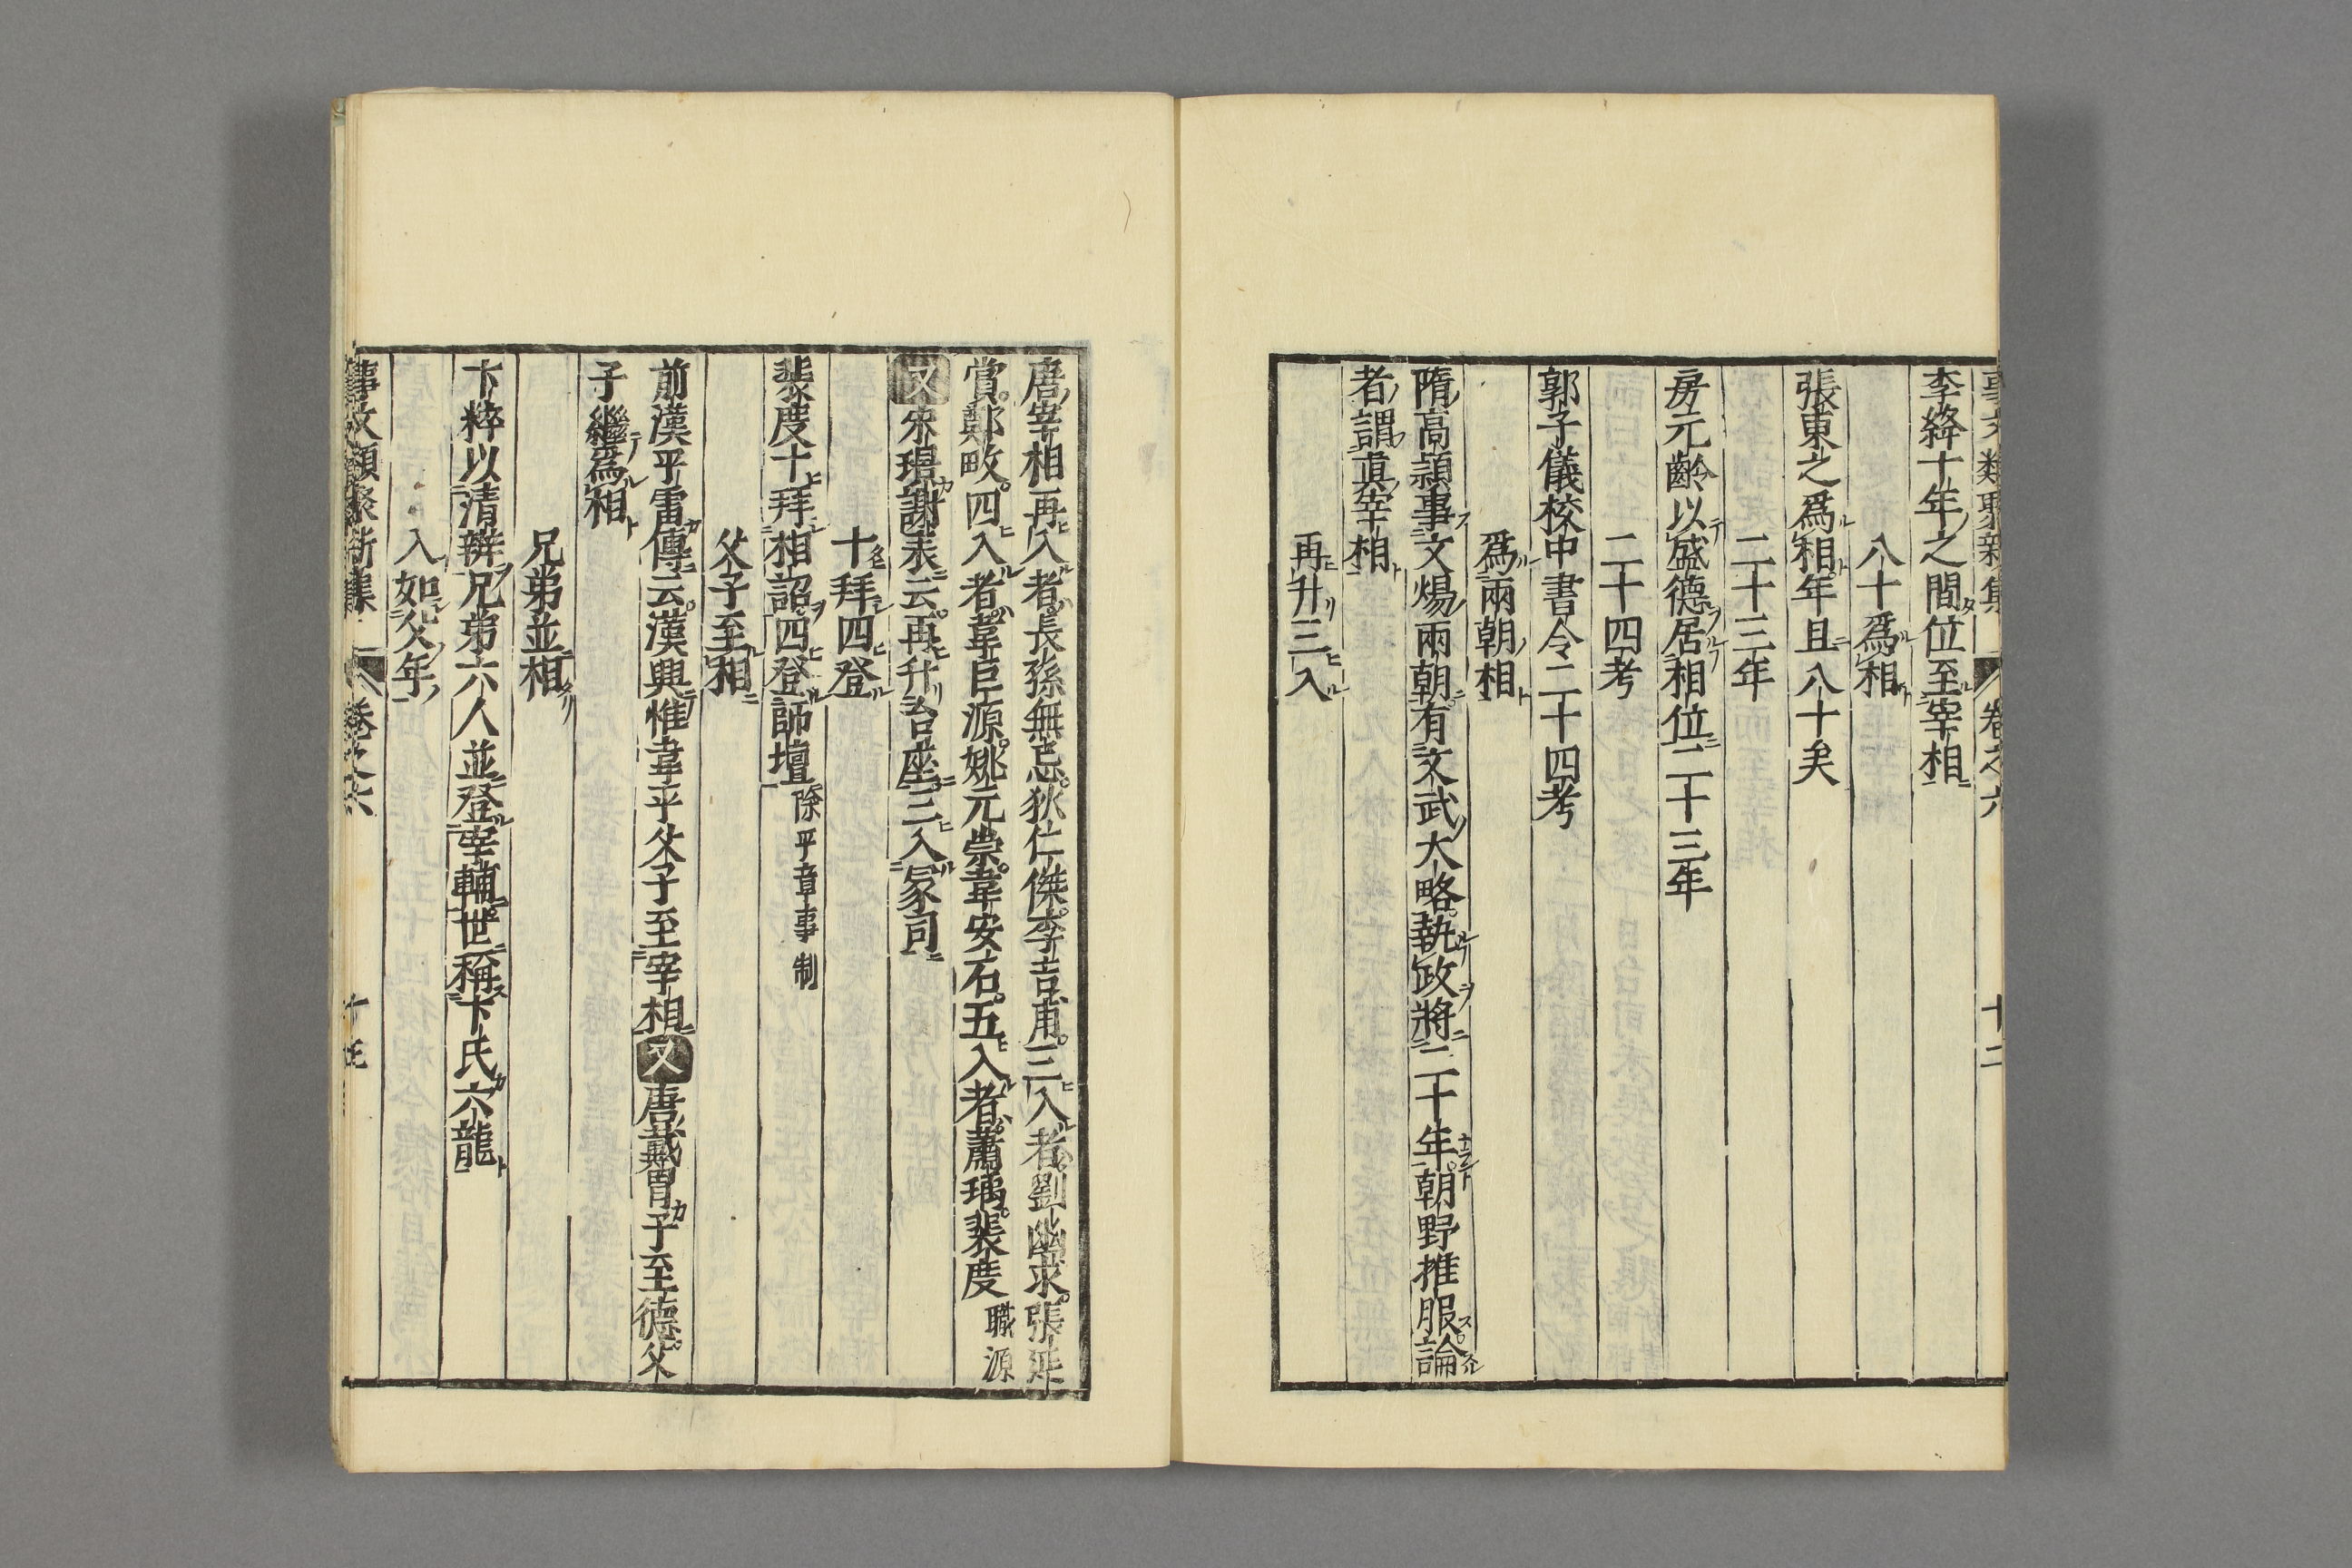 事文類聚新集 卷之六 十二
李絳十年之間位至宰相
八十爲相
張東之爲相年且八十矣
二十三年
房元齡以盛德居相位二十三年
二十四考
郭子儀校中書令二十四考
爲兩朝相
隋高熲事文煬兩朝有文武大略執政將二十年朝野推服論
者謂眞宰相
再升三入
唐宰相再入者長孫無忌狄仁傑李吉甫三入者劉幽求張延
賞鄭畋四入者韋巨源姚元崇韋安石五入者蕭瑀裴度 職源
又宋璟謝表云再升台座三入冢司
十拜四登
裴度十拜相詔四登師壇 除平章事制
父子至相
前漢平當傳云漢興惟韋平父子至宰相又唐戴胄子至德父
子繼爲相
兄弟並相
卞粹以清辨兄弟六人並登宰輔世稱卞氏六龍
入如父年
事文類聚新集 卷之六